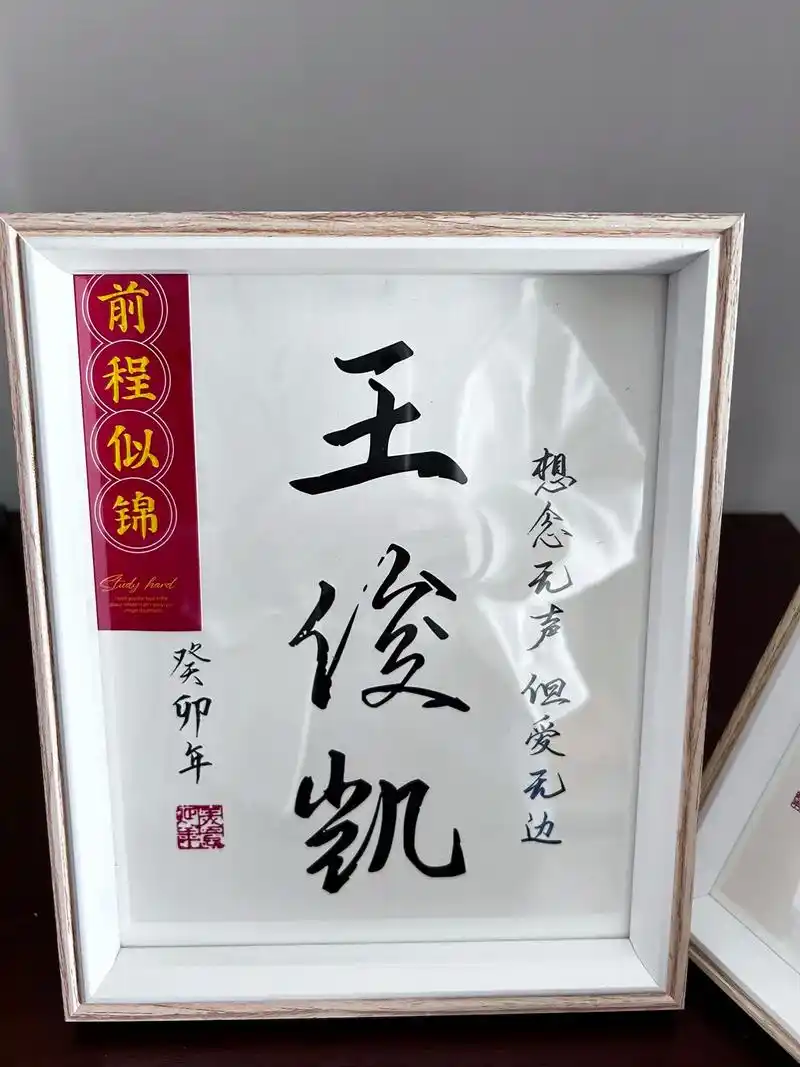 想念无声 但爱无边
王俊凯
前程似锦
Study hard
癸卯年